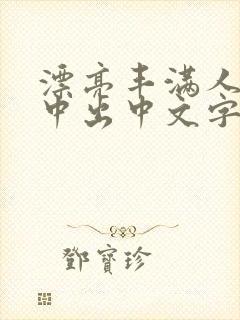 漂亮丰满人
中出中文字
鄧寶珍